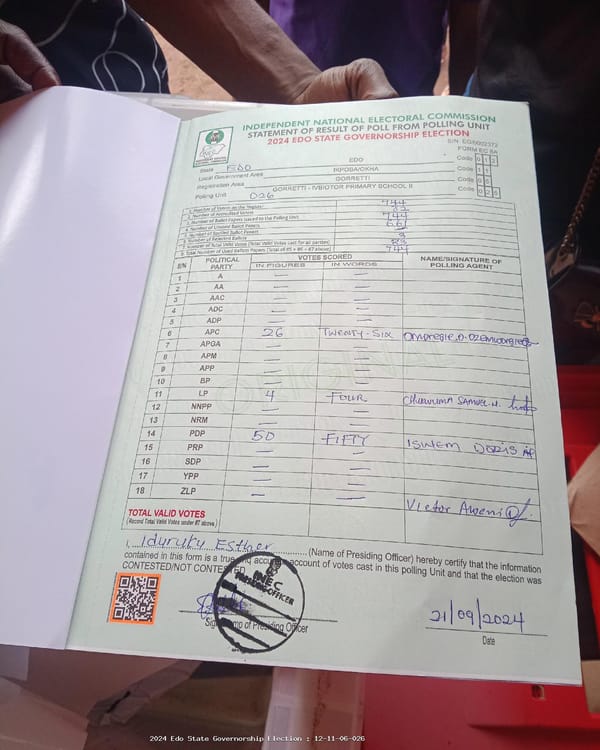 INDEPENDENT NATIONAL ELECTORAL COMMISSION
STATEMENT OF RESULT OF POLL FROM POLLING UNIT
2024 EDO STATE GOVERNORSHIP ELECTION
FORM EC 8A
State EDO EDO Code 012
Local Government Area IKPOBA/OKHA Code 11
Registration Area GORRETTI Code
Polling Unit 026 GORRETTI - IVBIOTOR PRIMARY SCHOOL II Code
1. Number of Voters on the Register 744
2. Number of Accredited Voters
3. Number of Ballot Papers Issued to the Polling Unit 744
4. Number of Unused Ballot Papers 661
5. Number of Spoiled Ballot Papers
6. Number of Rejected Ballots
7. Number of Total Valid Votes (Total Valid Votes cast for all parties)
8. Total Number of Used Ballot Papers (Total of #5 + #6 + #7 above)
S/N POLITICAL PARTY VOTES SCORED NAME/SIGNATURE OF POLLING AGENT
IN FIGURES IN WORDS
1 A — —
2 AA — —
3 AAC — —
4 ADC — —
5 ADP — —
6 APC 26 TWENTY-SIX
7 APGA — —
8 APM — —
9 APP — —
10 BP — —
11 LP 4 FOUR SAMUEL.N.
12 NNPP — —
13 NRM — —
14 PDP 50 FIFTY DORIS
15 PRP — —
16 SDP — —
17 YPP — —
18 ZLP — —
Victor
TOTAL VALID VOTES
(Record Total Valid Votes under #7 above)
I, Iduruky Esther (Name of Presiding Officer) hereby certify that the information
contained in this form is a true and accurate account of votes cast in this polling Unit and that the election was
CONTESTED/NOT CONTESTED
INEC
PRESIDING OFFICER
of Presiding Officer
21/09/2024
Date
2024 Edo State Governorship Election : 12-11-06-026